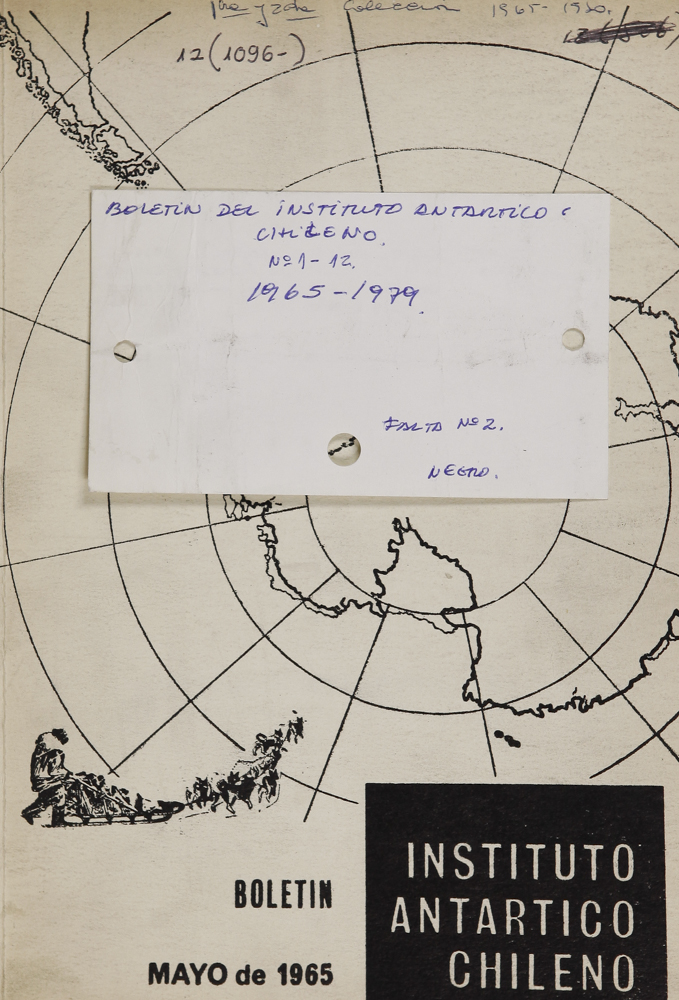 Colección 1965-1980.
12(1096-)
BOLETIN DEL INSTITUTO ANTARTICO
CHILENO.
Nº 1-12.
1965-1979.
FALTA Nº 2.
NEGRO.
BOLETIN
MAYO de 1965
INSTITUTO
ANTARTICO
CHILENO